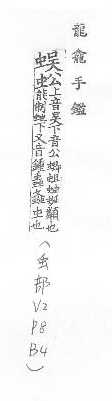 龍龕手鑑
蜈蚣上音吳下音公蝍蛆蚰蜒類也
能制蛇下又音鍾螽虫也
(虫部 V2 P8 B4)